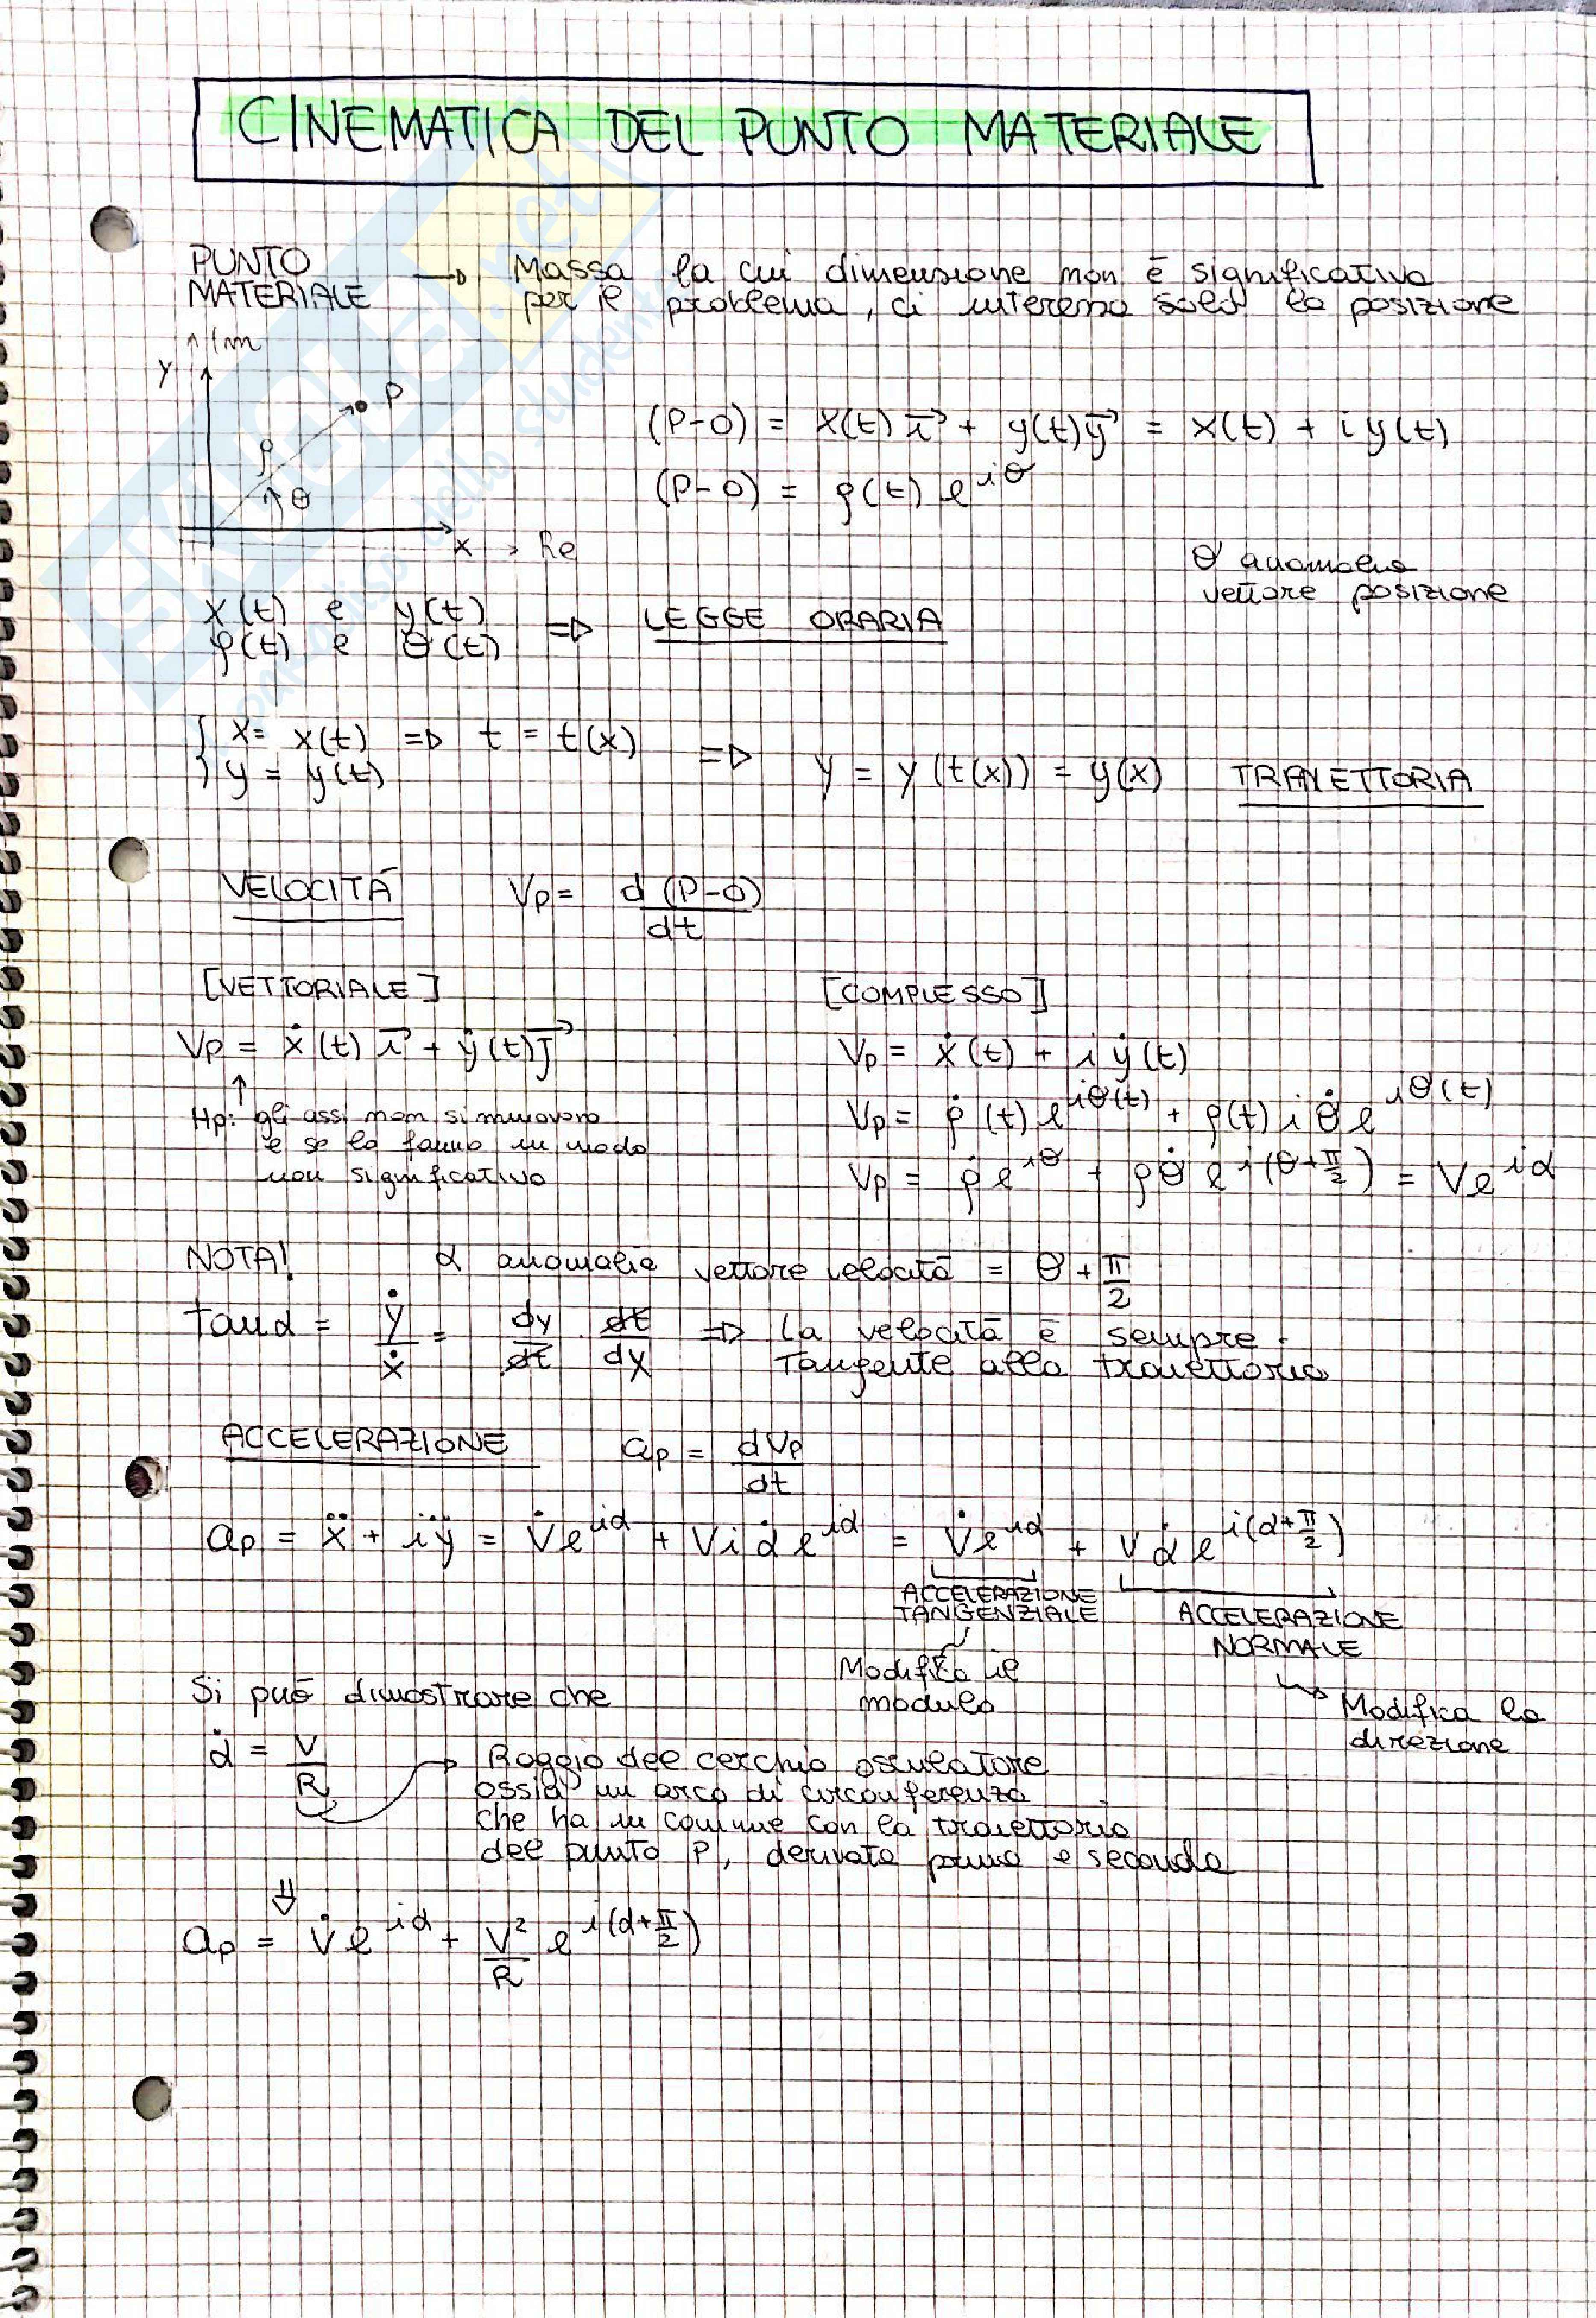 CINEMATICA DEL PUNTO MATERIALE
PUNTO MATERIALE → Massa la cui dimensione non è significativa
per il problema, ci interessa solo la posizione
Im
Y
P
ρ
θ
X → Re
(P-O) = x(t) i⃗ + y(t) y⃗ = x(t) + i y(t)
(P-O) = ρ(t) e^{iθ}
θ anomalia
vettore posizione
x(t) e y(t)
ρ(t) e θ(t) => LEGGE ORARIA
{ x = x(t) => t = t(x)
y = y(t) => y = y(t(x)) = y(x) TRAIETTORIA
VELOCITÀ Vp = d(P-O)/dt
[VETTORIALE]
Vp = ẋ(t) i⃗ + ẏ(t) j⃗
↑
Hp: gli assi non si muovono
e se lo fanno in modo
non significativo
[COMPLESSO]
Vp = ẋ(t) + i ẏ(t)
Vp = ρ̇(t) e^{iθ(t)} + ρ(t) i θ̇ e^{iθ(t)}
Vp = ρ̇ e^{iθ} + ρθ̇ e^{i(θ+π/2)} = V e^{iα}
NOTA! α anomalia vettore velocità = θ + π/2
tanα = ẏ/ẋ = dy/dt · dt/dx => La velocità è sempre
Tangente alla traiettoria
ACCELERAZIONE ap = dVp/dt
ap = ẍ + iÿ = V̇ e^{iα} + V i α̇ e^{iα} = V̇ e^{iα} + V α̇ e^{i(α+π/2)}
ACCELERAZIONE
TANGENZIALE
Modifica il
modulo
ACCELERAZIONE
NORMALE
↳ Modifica la
direzione
Si può dimostrare che
α̇ = V/R → Raggio del cerchio osculatore
ossia un arco di circonferenza
che ha in comune con la traiettoria
del punto P, derivata prima e seconda
⇓
ap = V̇ e^{iα} + V²/R e^{i(α+π/2)}
SKUOLA.net
paradiso dello studente